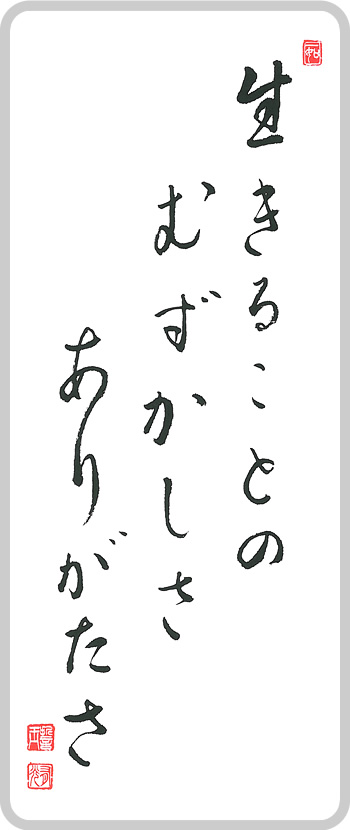 生きることの
むずかしさ
ありがたさ